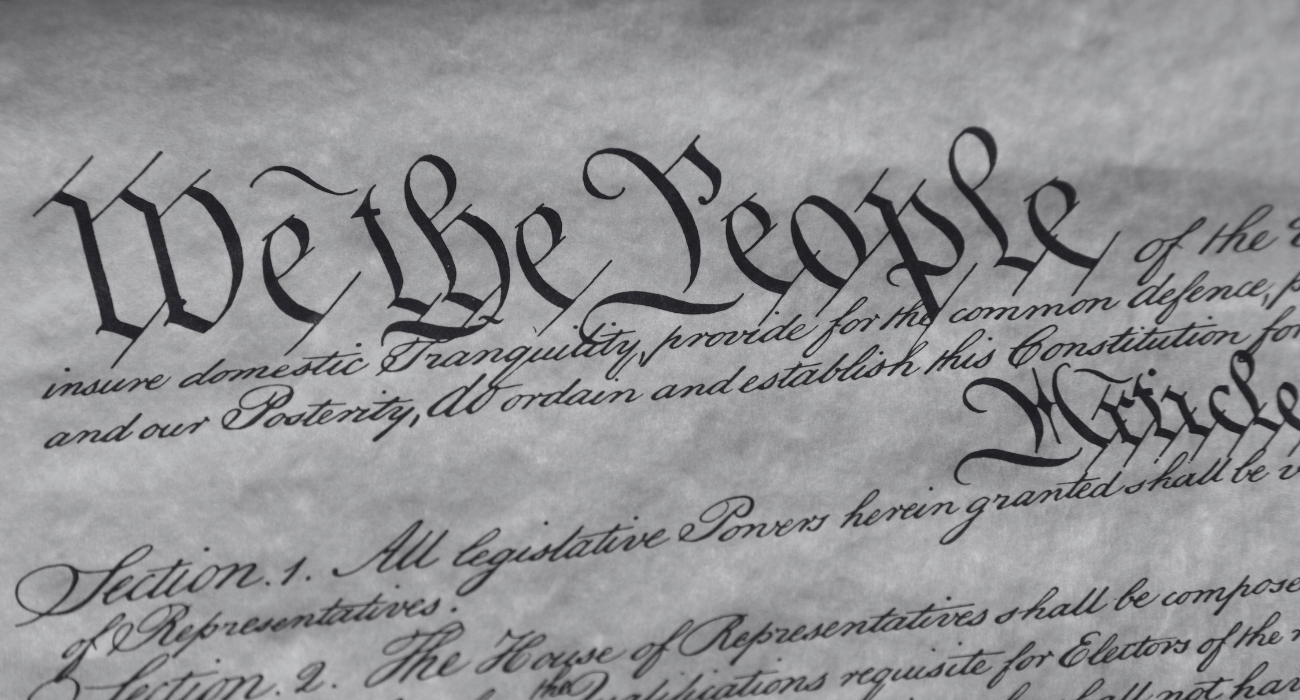 We the People of the
insure domestic Tranquility, provide for the common defence,
and our Posterity, do ordain and establish this Constitution for
Article
Section. 1. All legislative Powers herein granted shall be
of Representatives.
Section. 2. The House of Representatives shall be compose
the Qualifications requisite for Electors of the
shall not have